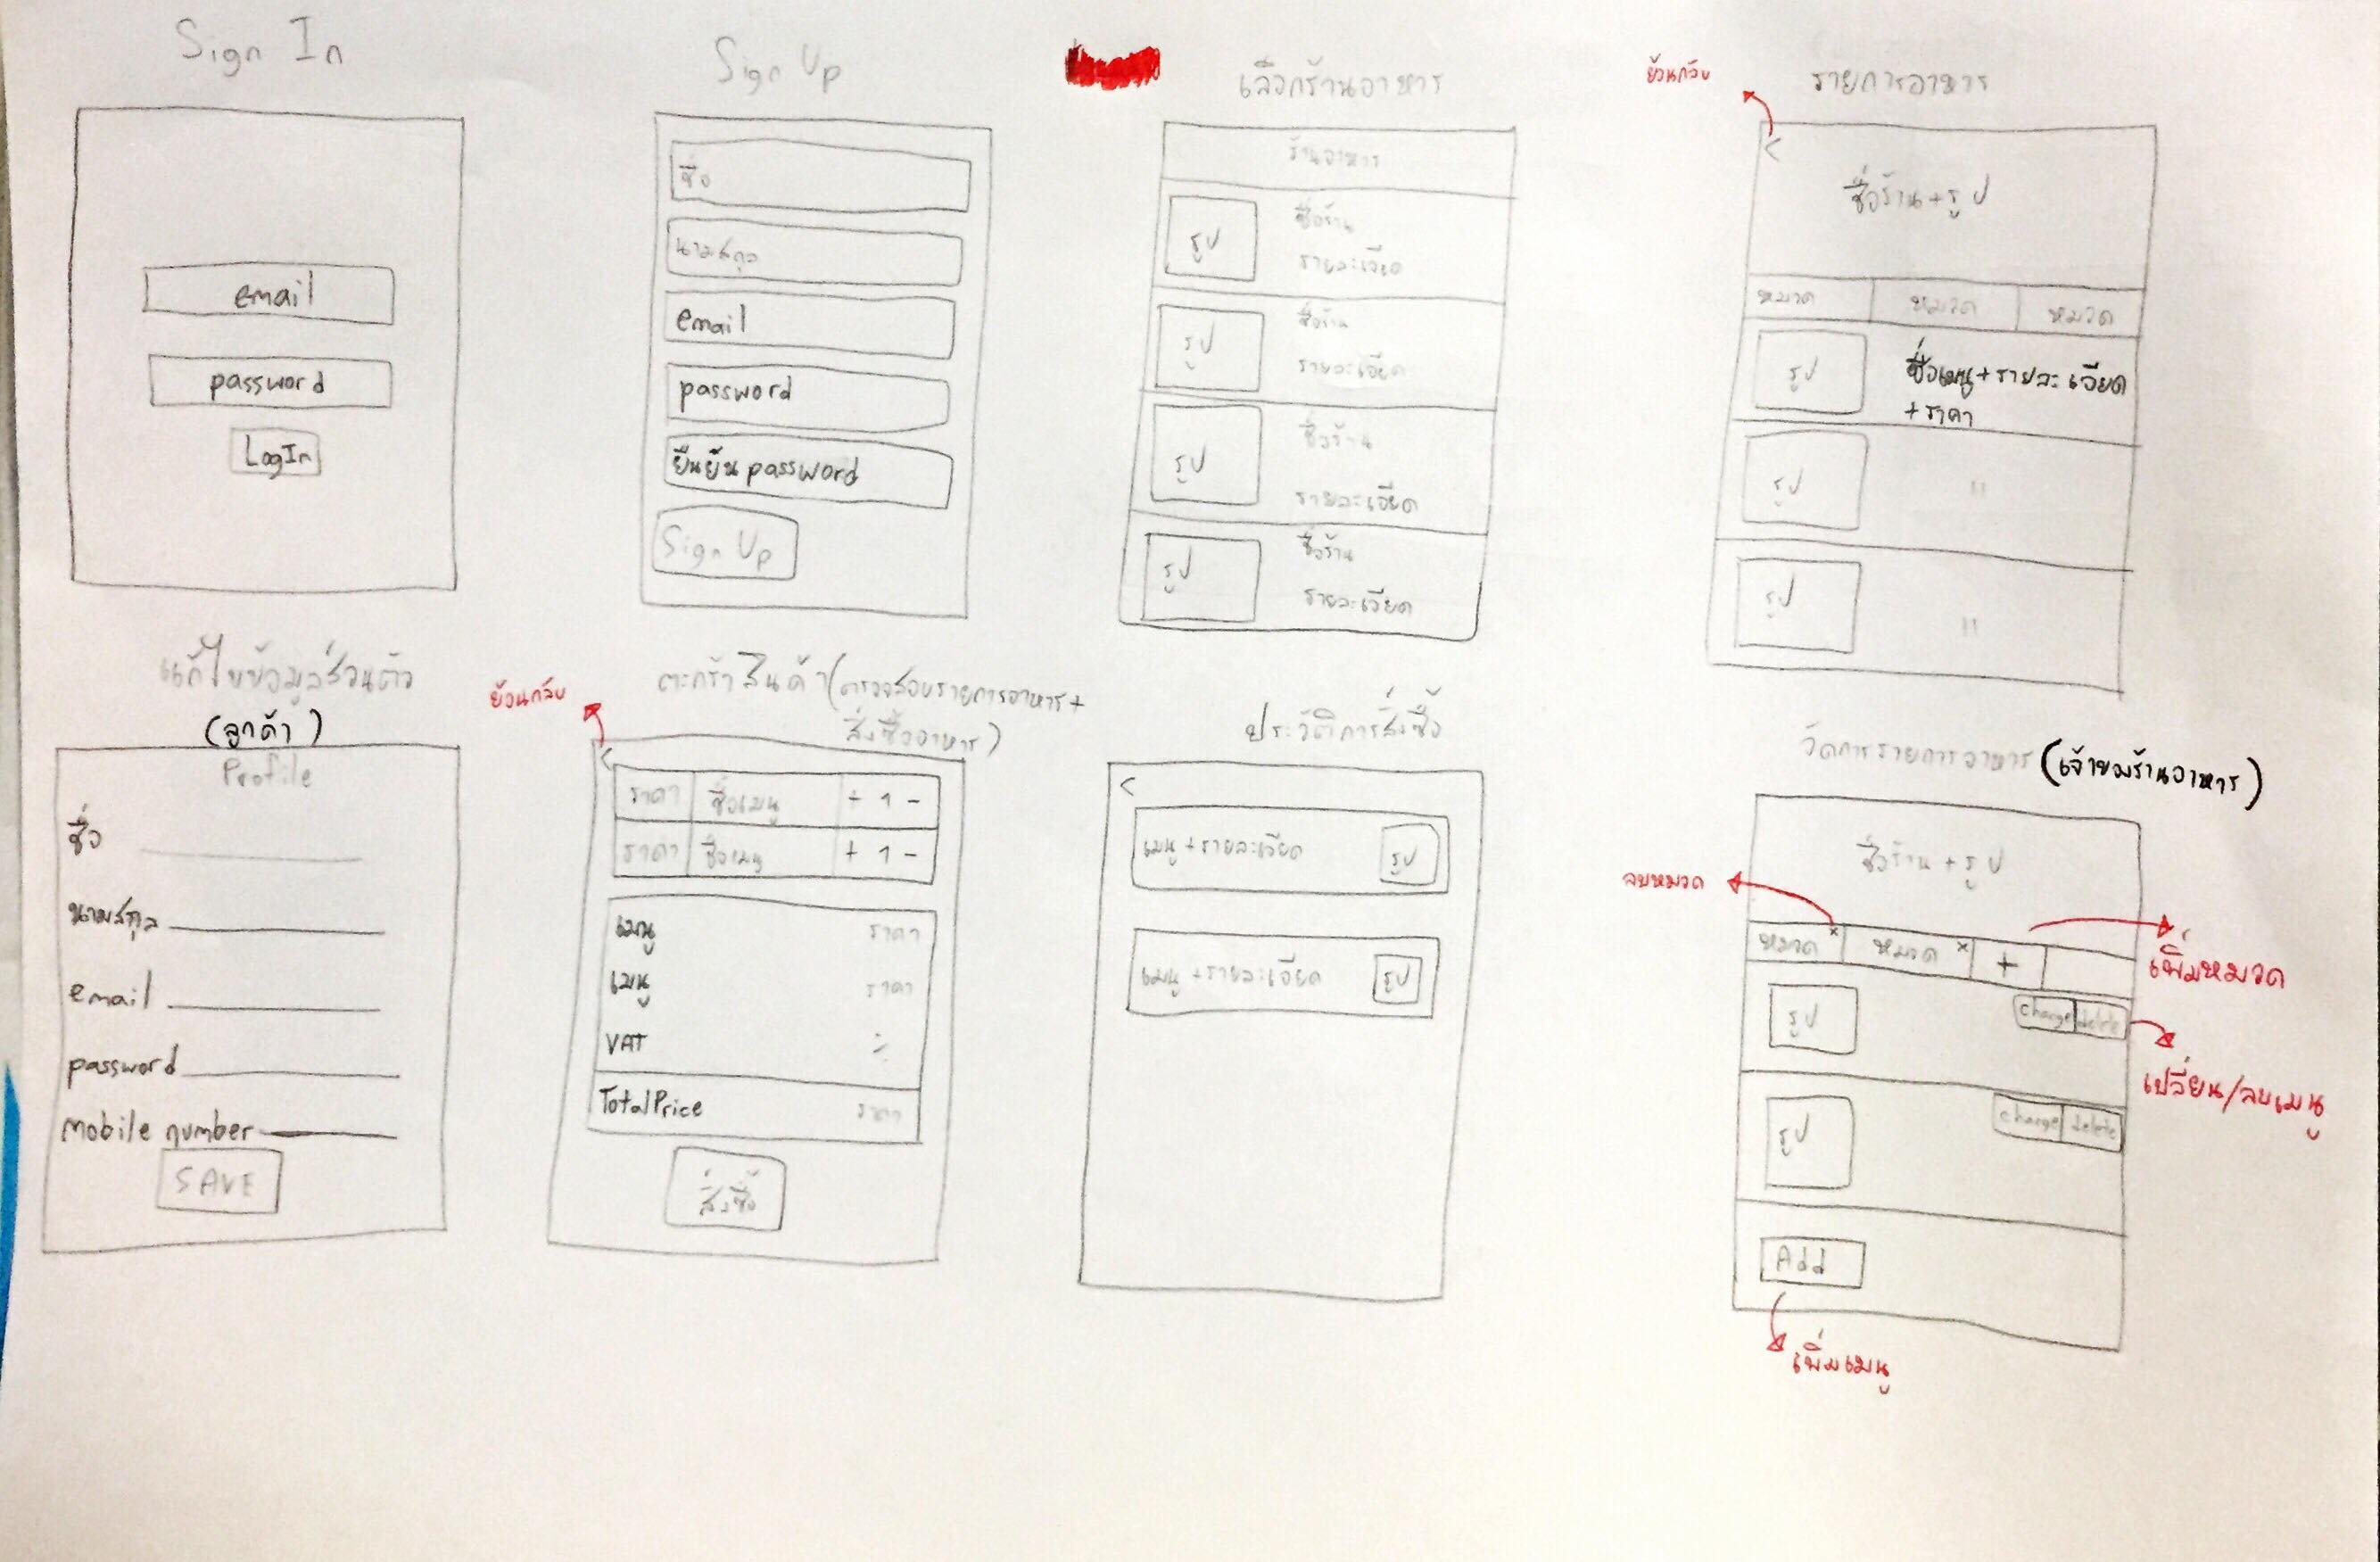 Sign In
email
password
LogIn
Sign Up
ชื่อ
นามสกุล
email
password
ยืนยัน password
Sign Up
เลือกร้านอาหาร
ร้านอาหาร
รูป
ชื่อร้าน
รายละเอียด
รูป
ชื่อร้าน
รายละเอียด
รูป
ชื่อร้าน
รายละเอียด
รูป
ชื่อร้าน
รายละเอียด
ย้อนกลับ
รายการอาหาร
<
ชื่อร้าน+รูป
หมวด หมวด หมวด
รูป
ชื่อเมนู+รายละเอียด
+ราคา
รูป
"
รูป
"
แก้ไขข้อมูลส่วนตัว
(ลูกค้า)
Profile
ชื่อ
นามสกุล
email
password
mobile number
SAVE
ย้อนกลับ
ตะกร้าสินค้า(ตรวจสอบรายการอาหาร+
สั่งซื้ออาหาร)
<
ราคา ชื่อเมนู + 1 -
ราคา ชื่อเมนู + 1 -
เมนู ราคา
เมนู ราคา
VAT %
Total Price ราคา
สั่งซื้อ
ประวัติการสั่งซื้อ
<
เมนู+รายละเอียด รูป
เมนู+รายละเอียด รูป
จัดการรายการอาหาร(เจ้าของร้านอาหาร)
ชื่อร้าน+รูป
ลบหมวด
หมวด x หมวด x +
เพิ่มหมวด
รูป
change delete
เปลี่ยน/ลบเมนู
รูป
change delete
Add
เพิ่มเมนู